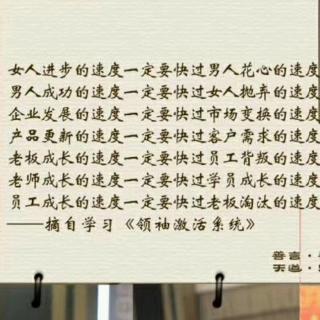 女人进步的速度一定要快过男人花心的速度
男人成功的速度一定要快过女人抛弃的速度
企业发展的速度一定要快过市场变换的速度
产品更新的速度一定要快过客户需求的速度
老板成长的速度一定要快过员工背叛的速度
老师成长的速度一定要快过学员成长的速度
员工成长的速度一定要快过老板淘汰的速度
——摘自学习《领袖激活系统》
善言·
天道·